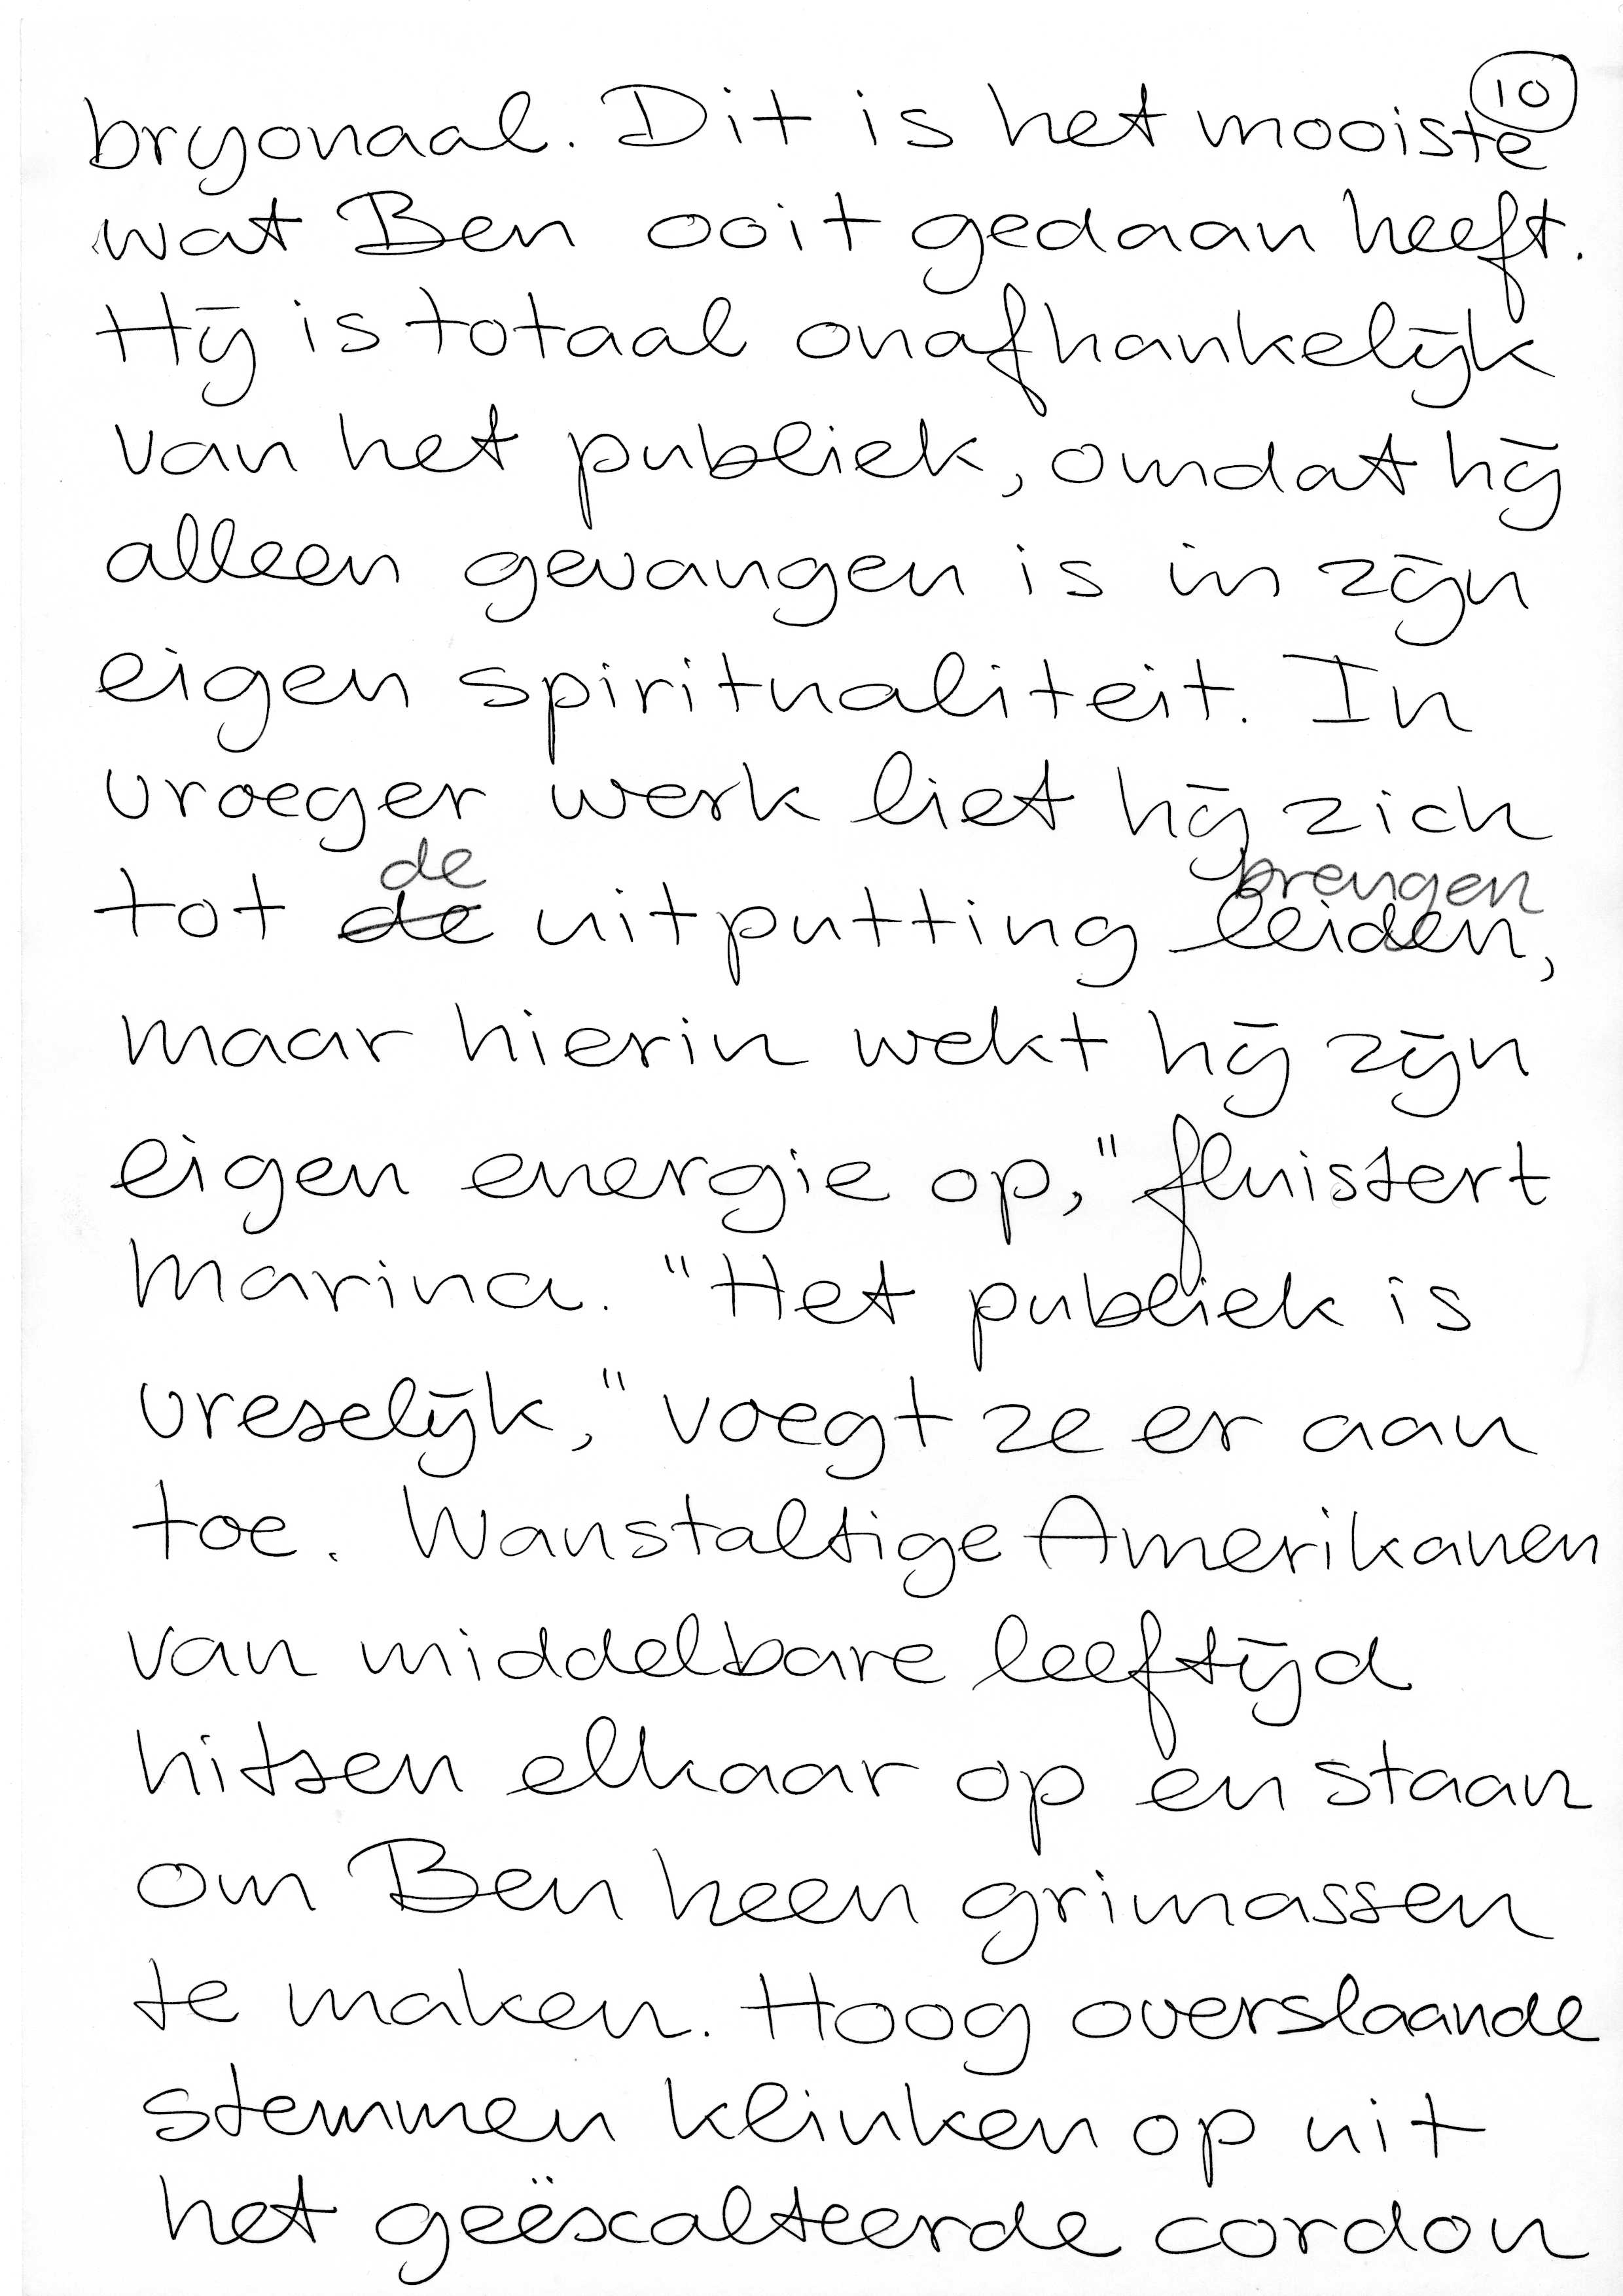 10
bryonaal. Dit is het mooiste
wat Ben ooit gedaan heeft.
Hij is totaal onafhankelijk
van het publiek, omdat hij
alleen gevangen is in zijn
eigen spiritualiteit. In
vroeger werk liet hij zich
de brengen
tot de uitputting leiden,
maar hierin wekt hij zijn
eigen energie op," fluistert
Marina. "Het publiek is
vreselijk," voegt ze er aan
toe. Wanstaltige Amerikanen
van middelbare leeftijd
hitsen elkaar op en staan
om Ben heen grimassen
te maken. Hoog overslaande
stemmen klinken op uit
het geëxalteerde cordon